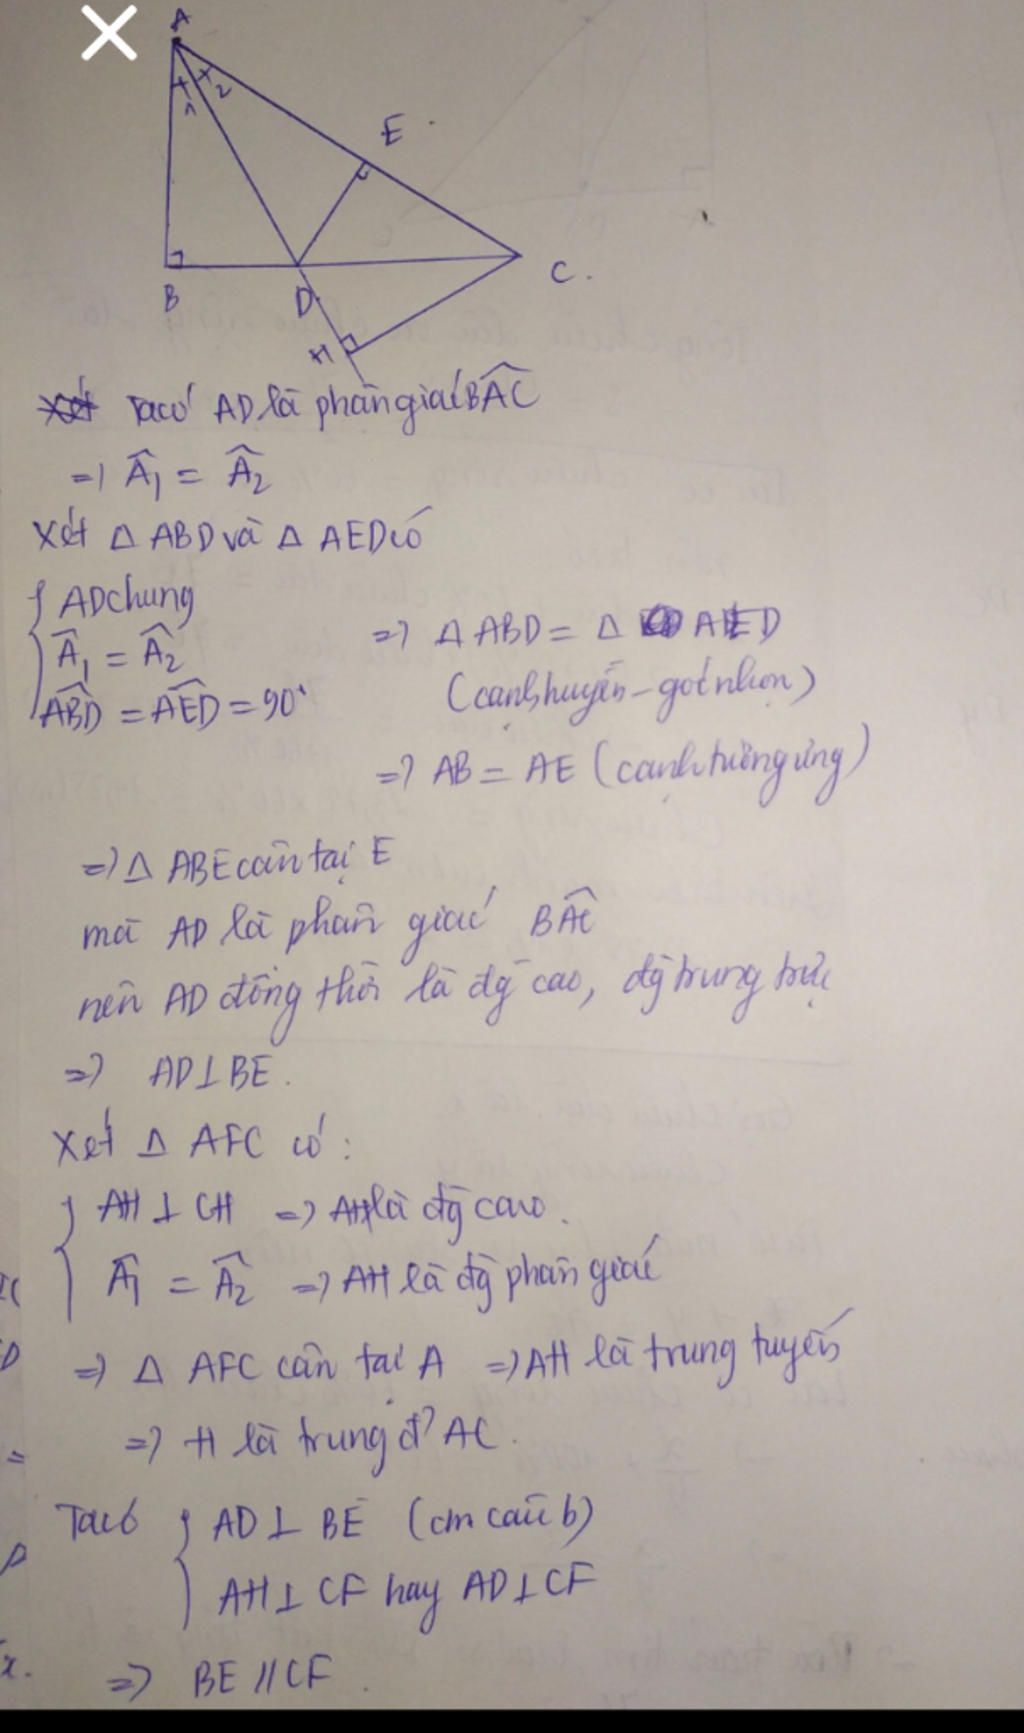 A
1 2
E
B D C.
H
Xét Ta có AD là phân giác BAC
=> Â₁ = Â₂
Xét Δ ABD và Δ AED có
{ AD chung
Â₁ = Â₂
ABD = AED = 90°
=> Δ ABD = Δ AED
(cạnh huyền - góc nhọn)
=> AB = AE (cạnh tương ứng)
=> Δ ABE cân tại E
mà AD là phân giác BAC
nên AD đồng thời là đg cao, đg trung trực
=> AD ⊥ BE.
Xét Δ AFC có:
{ AH ⊥ CH => AH là đg cao.
Â₁ = Â₂ => AH là đg phân giác
=> Δ AFC cân tại A => AH là trung tuyến
=> H là trung đ' AC.
Ta có { AD ⊥ BE (cm câu b)
AH ⊥ CF hay AD ⊥ CF
=> BE // CF.